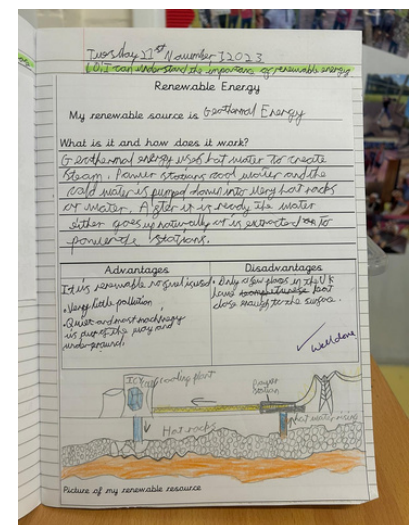 Tuesday 21st November 2023
LO: I can understand the importance of renewable energy
Renewable Energy
My renewable source is Geothermal Energy
What is it and how does it work?
Geothermal energy uses hot water to create
steam. Power stations cool water and the
cold water is pumped down into very hot rocks
or water. After it is ready the water
either goes up naturally or is extracted to
power the stations.
Advantages
It is renewable no fuel is used
• Very little pollution
• Quiet and most machinery
is out of the way and
underground.
Disadvantages
• Only a few places in the UK
have temperatures hot
close enough to the surface.
Well done
ICY
cooling plant
Power
station
Hot rocks
hot water rising
Picture of my renewable resource